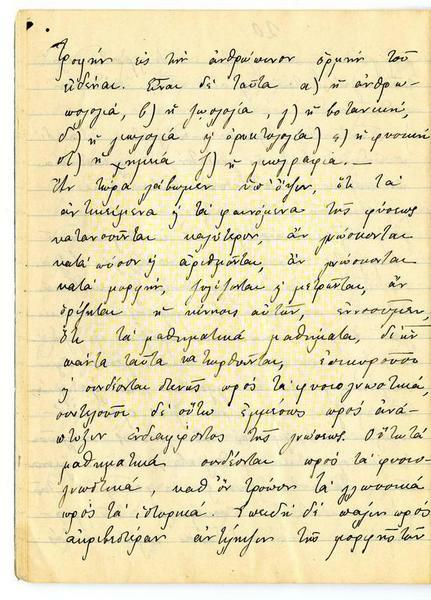 τροφὴν εἰς τὴν ἀνθρώπινον ὁρμὴν τοῦ
εἰδέναι. Εἶναι δὲ ταῦτα α) ἡ ἀνθρω-
πολογία, β) ἡ ζωολογία, γ) ἡ βοτανική,
δ) ἡ γεωλογία ἢ ὀρυκτολογία) ε) ἡ φυσικὴ
στ) ἡ χημεία ζ) ἡ γεωγραφία. —
Ἂν τώρα λάβωμεν ὑπ' ὄψιν, ὅτι τὰ
ἀντικείμενα ἢ τὰ φαινόμενα τῆς φύσεως
κατανοοῦνται καλύτερον, ἂν γνώσκονται
κατὰ πόσον ἢ ἀριθμῶνται, ἂν γνώσκονται
κατὰ μορφήν, ζυγίζονται ἢ μετρῶνται, ἂν
ὁρίζηται ἡ κίνησις αὐτῶν, ἐννοοῦμεν,
ὅτι τὰ μαθηματικὰ μαθήματα, δι' ὧν
πάντα ταῦτα κατορθοῦνται, ἐπικουροῦσι
ἢ συνδέονται στενῶς πρὸς τὰ φυσιογνωστικά,
συντελοῦσι δὲ οὕτω ἐμμέσως πρὸς ἀνά-
πτυξιν ἐνδιαφέροντος τῆς γνώσεως. Οὕτω τὰ
μαθηματικὰ συνδέονται πρὸς τὰ φυσιο-
γνωστικά, καθ' ὃν τρόπον τὰ γλωσσικὰ
πρὸς τὰ ἱστορικά. Ἐπειδὴ δὲ πάλιν πρὸς
ἀκριβεστέραν ἀντίληψιν τῆς μορφῆς τῶν